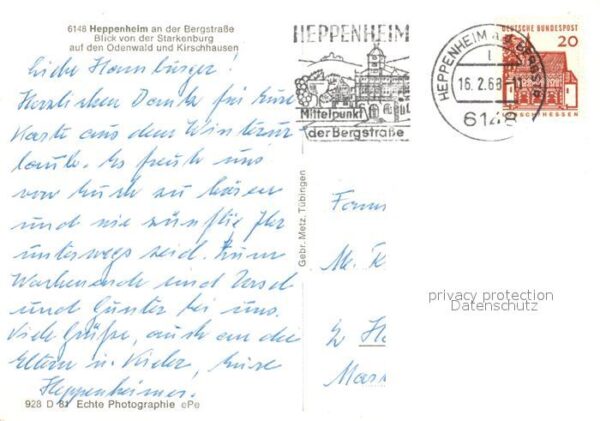 6148 Heppenheim an der Bergstraße
Blick von der Starkenburg
auf den Odenwald und Kirschhausen
Liebe Hamburger!
Herzlichen Dank für Eure
Karte aus dem Winterur
laub. Es freute uns
von Euch zu hören
und wie zünftig Ihr
unterwegs seid. Zum
Wochenende sind Ursel
und Günter bei uns.
Viele Grüße, auch an die
Eltern u. Kinder, Eure
Heppenheimer.
928 D 81 Echte Photographie ePe
Gebr. Metz, Tübingen
HEPPENHEIM
Mittelpunkt
der Bergstraße
HEPPENHEIM a.d. BERGSTR
16.2.68
6148
DEUTSCHE BUNDESPOST
20
HESSEN
Fam
privacy protection
Datenschutz